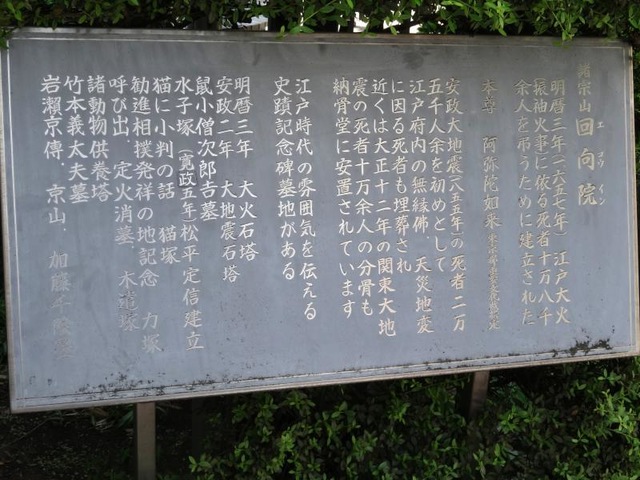 諸宗山 回向院
エコウイン
明暦三年(一六五七年) 江戸大火
(振袖火事)に依る死者十万八千
余人を弔うために建立された
本尊 阿弥陀如来
安政大地震(一八五五年)の死者二万
五千人余を初めとして
江戸府内の無縁佛、天災地変
に因る死者も埋葬され
近くは大正十二年の関東大地
震の死者十万余人の分骨も
納骨堂に安置されています
江戸時代の雰囲気を伝える
史蹟記念碑墓地がある
明暦三年 大火石塔
安政二年 大地震石塔
鼠小僧次郎吉墓
水子塚(寛政五年)松平定信建立
猫に小判の話 猫塚
勧進相撲発祥の地記念 力塚
呼び出、定火消墓、木遣塚
諸動物供養塔
竹本義太夫墓
岩瀬京傳、京山、加藤千蔭墓